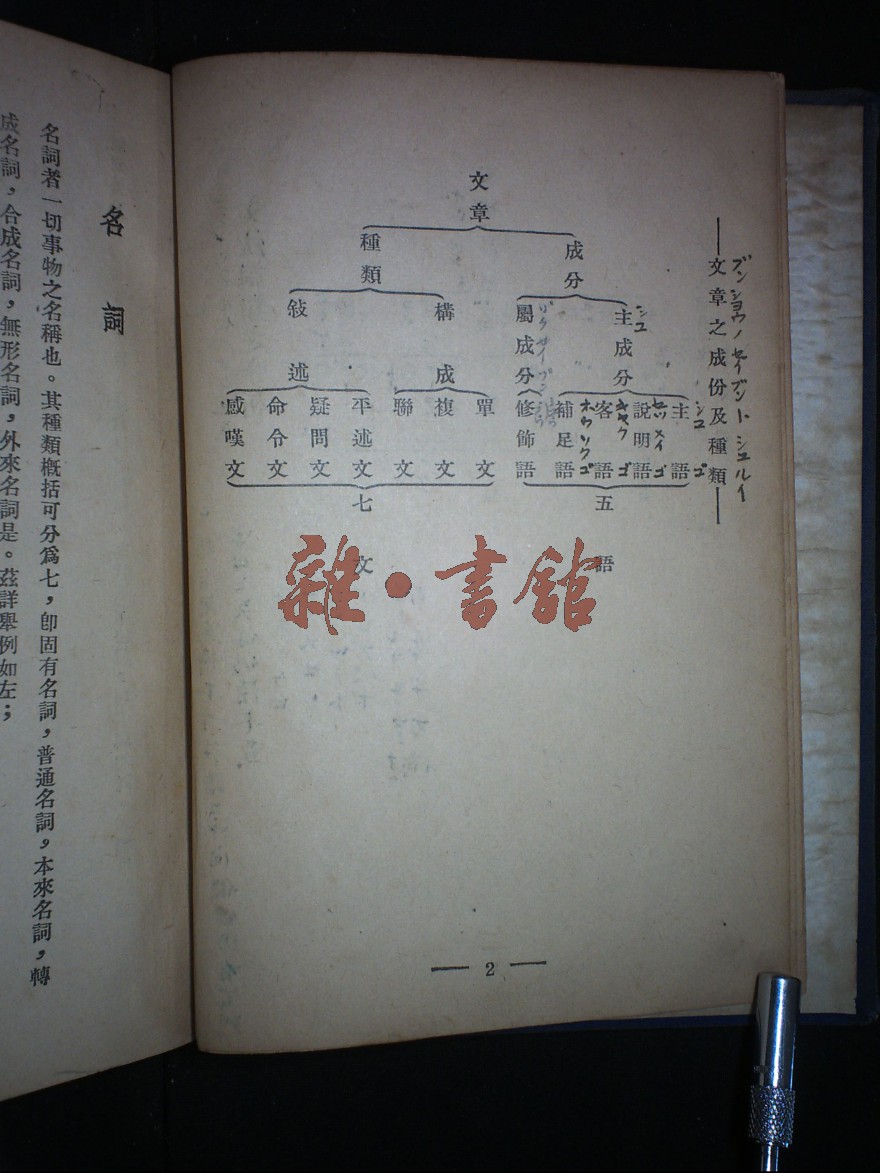 文章之成份及種類
ブンショウノセイブントシュルイ
文章
成分
種類
主成分
シュ
屬成分
構成
敍述
主語
シュゴ
說明語
セツメイゴ
客語
キャクゴ
補足語
ホウソクゴ
修飾語
單文
複文
聯文
平述文
疑問文
命令文
感嘆文
五語
七文
雜·書館
2
名詞
名詞者一切事物之名稱也。其種類概括可分爲七，卽固有名詞，普通名詞，本來名詞，轉
成名詞，合成名詞，無形名詞，外來名詞是。茲詳舉例如左；